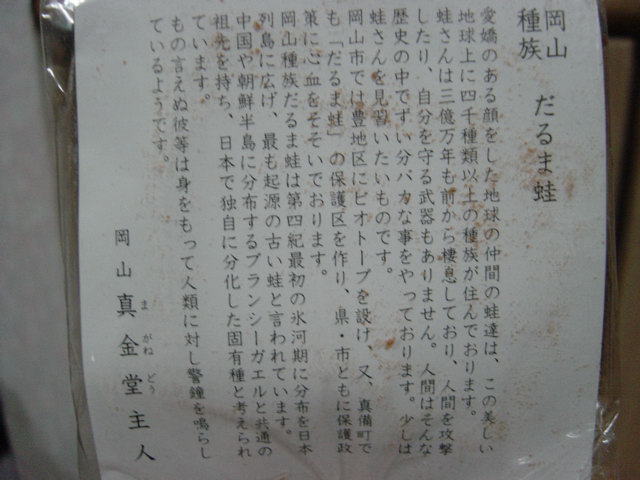 岡山種族 だるま蛙
愛嬌のある顔をした地球の仲間の蛙達は、この美しい
地球上に四千種類以上の種族が住んでおります。
蛙さんは三億万年も前から棲息しており、人間を攻撃
したり、自分を守る武器もありません。人間はそんな
歴史の中でずい分バカな事をやっております。少しは
蛙さんを見習いたいものです。
岡山市では豊地区にビオトープを設け、又、真備町で
も「だるま蛙」の保護区を作り、県・市ともに保護政
策に心血をそそいでおります。
岡山種族だるま蛙は第四紀最初の氷河期に分布を日本
列島に広げ、最も起源の古い蛙と言われています。
中国や朝鮮半島に分布するプランシーガエルと共通の
祖先を持ち、日本で独自に分化した固有種と考えられ
ています。
もの言えぬ彼等は身をもって人類に対し警鐘を鳴らし
ているようです。
岡山 真金堂主人
まがねどう